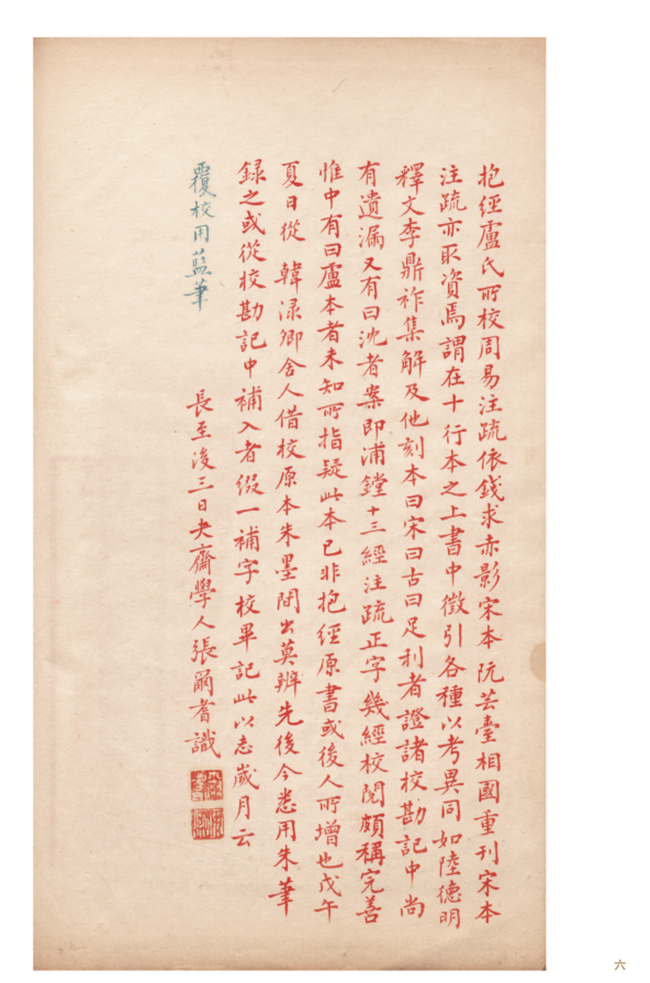 抱經盧氏所校周易注疏依錢求赤影宋本阮芸臺相國重刊宋本
注疏亦取資焉謂在十行本之上書中徵引各種以考異同如陸德明
釋文李鼎祚集解及他刻本曰宋曰古曰足利者證諸校勘記中尚
有遺漏又有曰沈者案即浦鏜十三經注疏正字幾經校閱頗稱完善
惟中有曰盧本者未知所指疑此本已非抱經原書或後人所增也戊午
夏日從 韓淥卿舍人借校原本朱墨間出莫辨先後今悉用朱筆
録之或從校勘記中補入者綴一補字校畢記此以志歲月云
長至後三日夬齋學人張爾耆識
覆校用藍筆
六